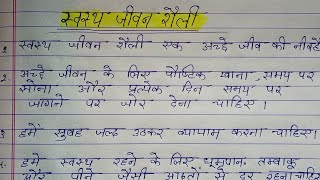 स्वस्थ जीवन शैली
1. स्वस्थ जीवन शैली एक अच्छे जीव की नींव है
2. अच्छे जीवन के लिए पौष्टिक खाना, समय पर
सोना, और प्रत्येक दिन समय पर
जागने पर जोर देना चाहिए।
3 हमें सुबह जल्द उठकर व्यायाम करना चाहिए।
4. हमें स्वस्थ रहने के लिए धूम्रपान तम्बाकू
और पीने जैसी आदतों से दूर रहना चाहि